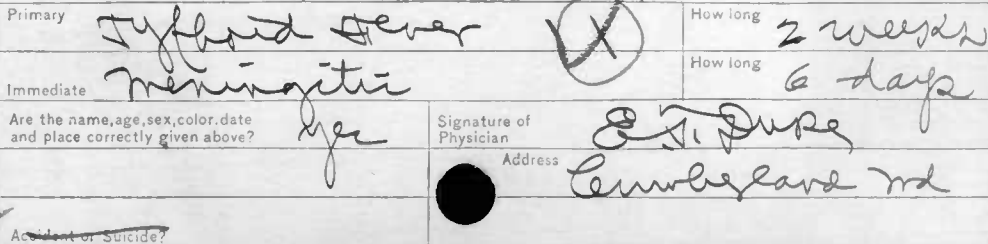 Primary Tyffoid Fever How long 2 weeks
Immediate Meningitis How long 6 days
Are the name, age, sex, color. date and place correctly given above? yes
Signature of Physician E. T. Duke
Address Cumberland Md
Accident or Suicide?